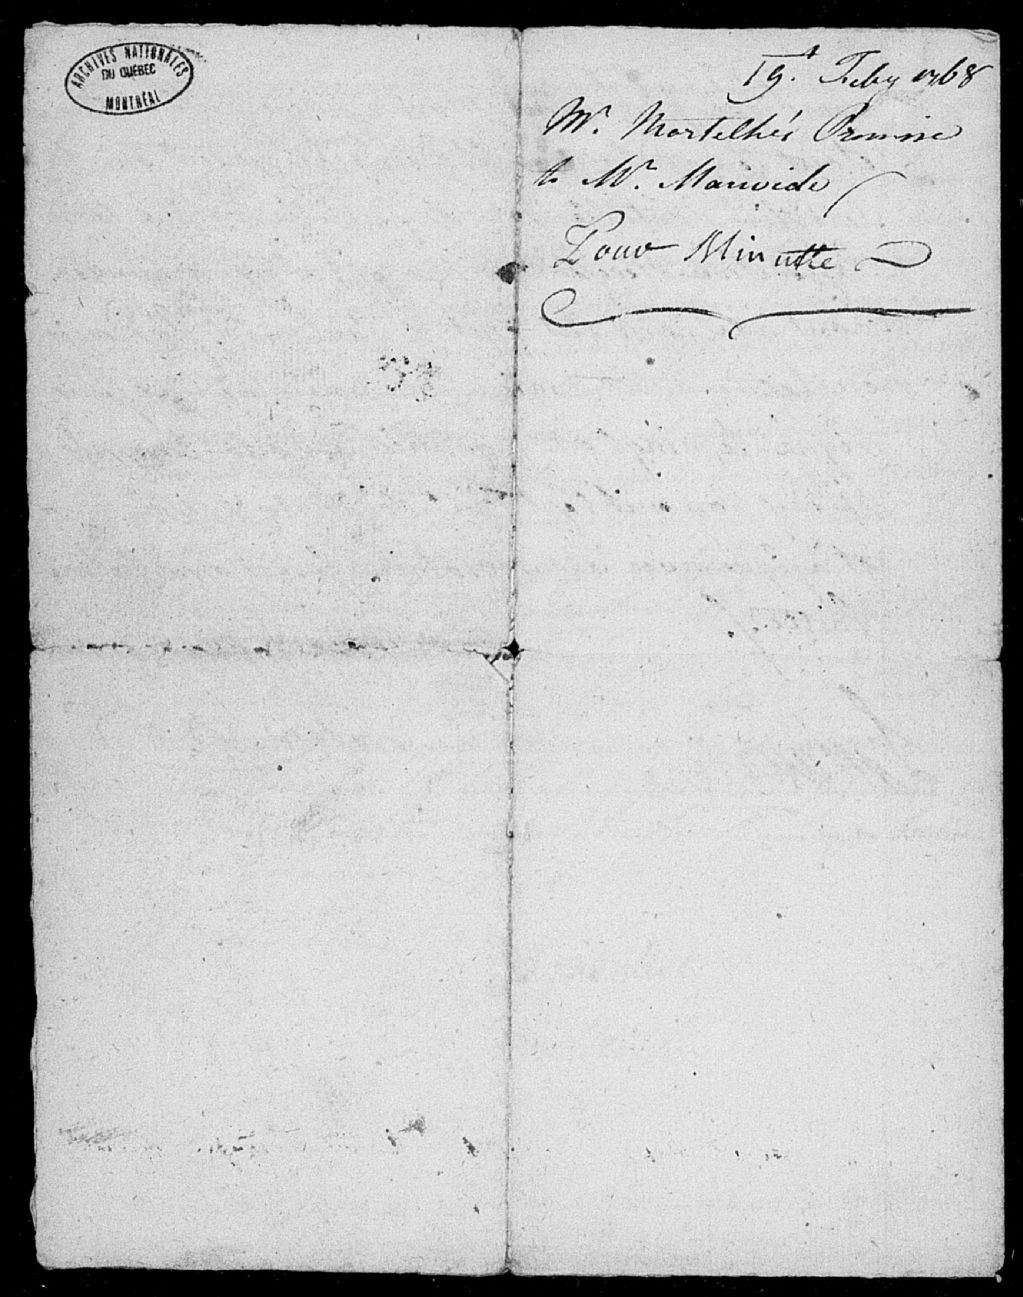 ARCHIVES NATIONALES
DU QUÉBEC
MONTRÉAL
19.t Feby 1768
Mr. Promise
to Mr. Mauvide
Pour Minutte